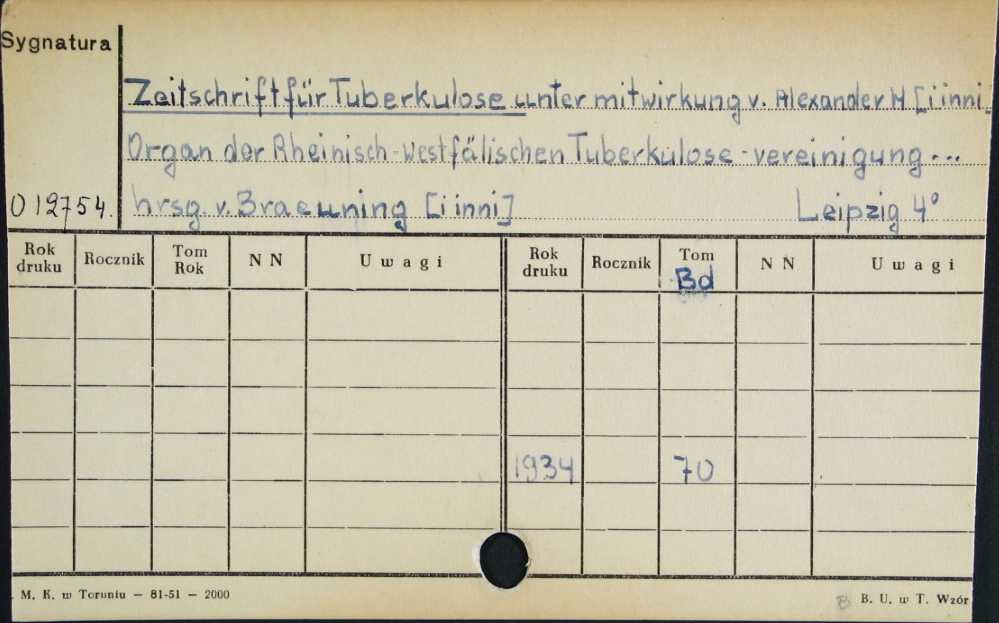 Sygnatura
Zeitschrift für Tuberkulose unter mitwirkung v. Alexander H [i inni]
Organ der Rheinisch-Westfälischen Tuberkulose-vereinigung...
012754. hrsg. v. Braeuning [i inni] Leipzig 4°
Rok druku Rocznik Tom Rok N N Uwagi Rok druku Rocznik Tom Bd N N Uwagi
1934 70
M. K. w Toruniu — 81-51 — 2000 B B. U. w T. Wzór